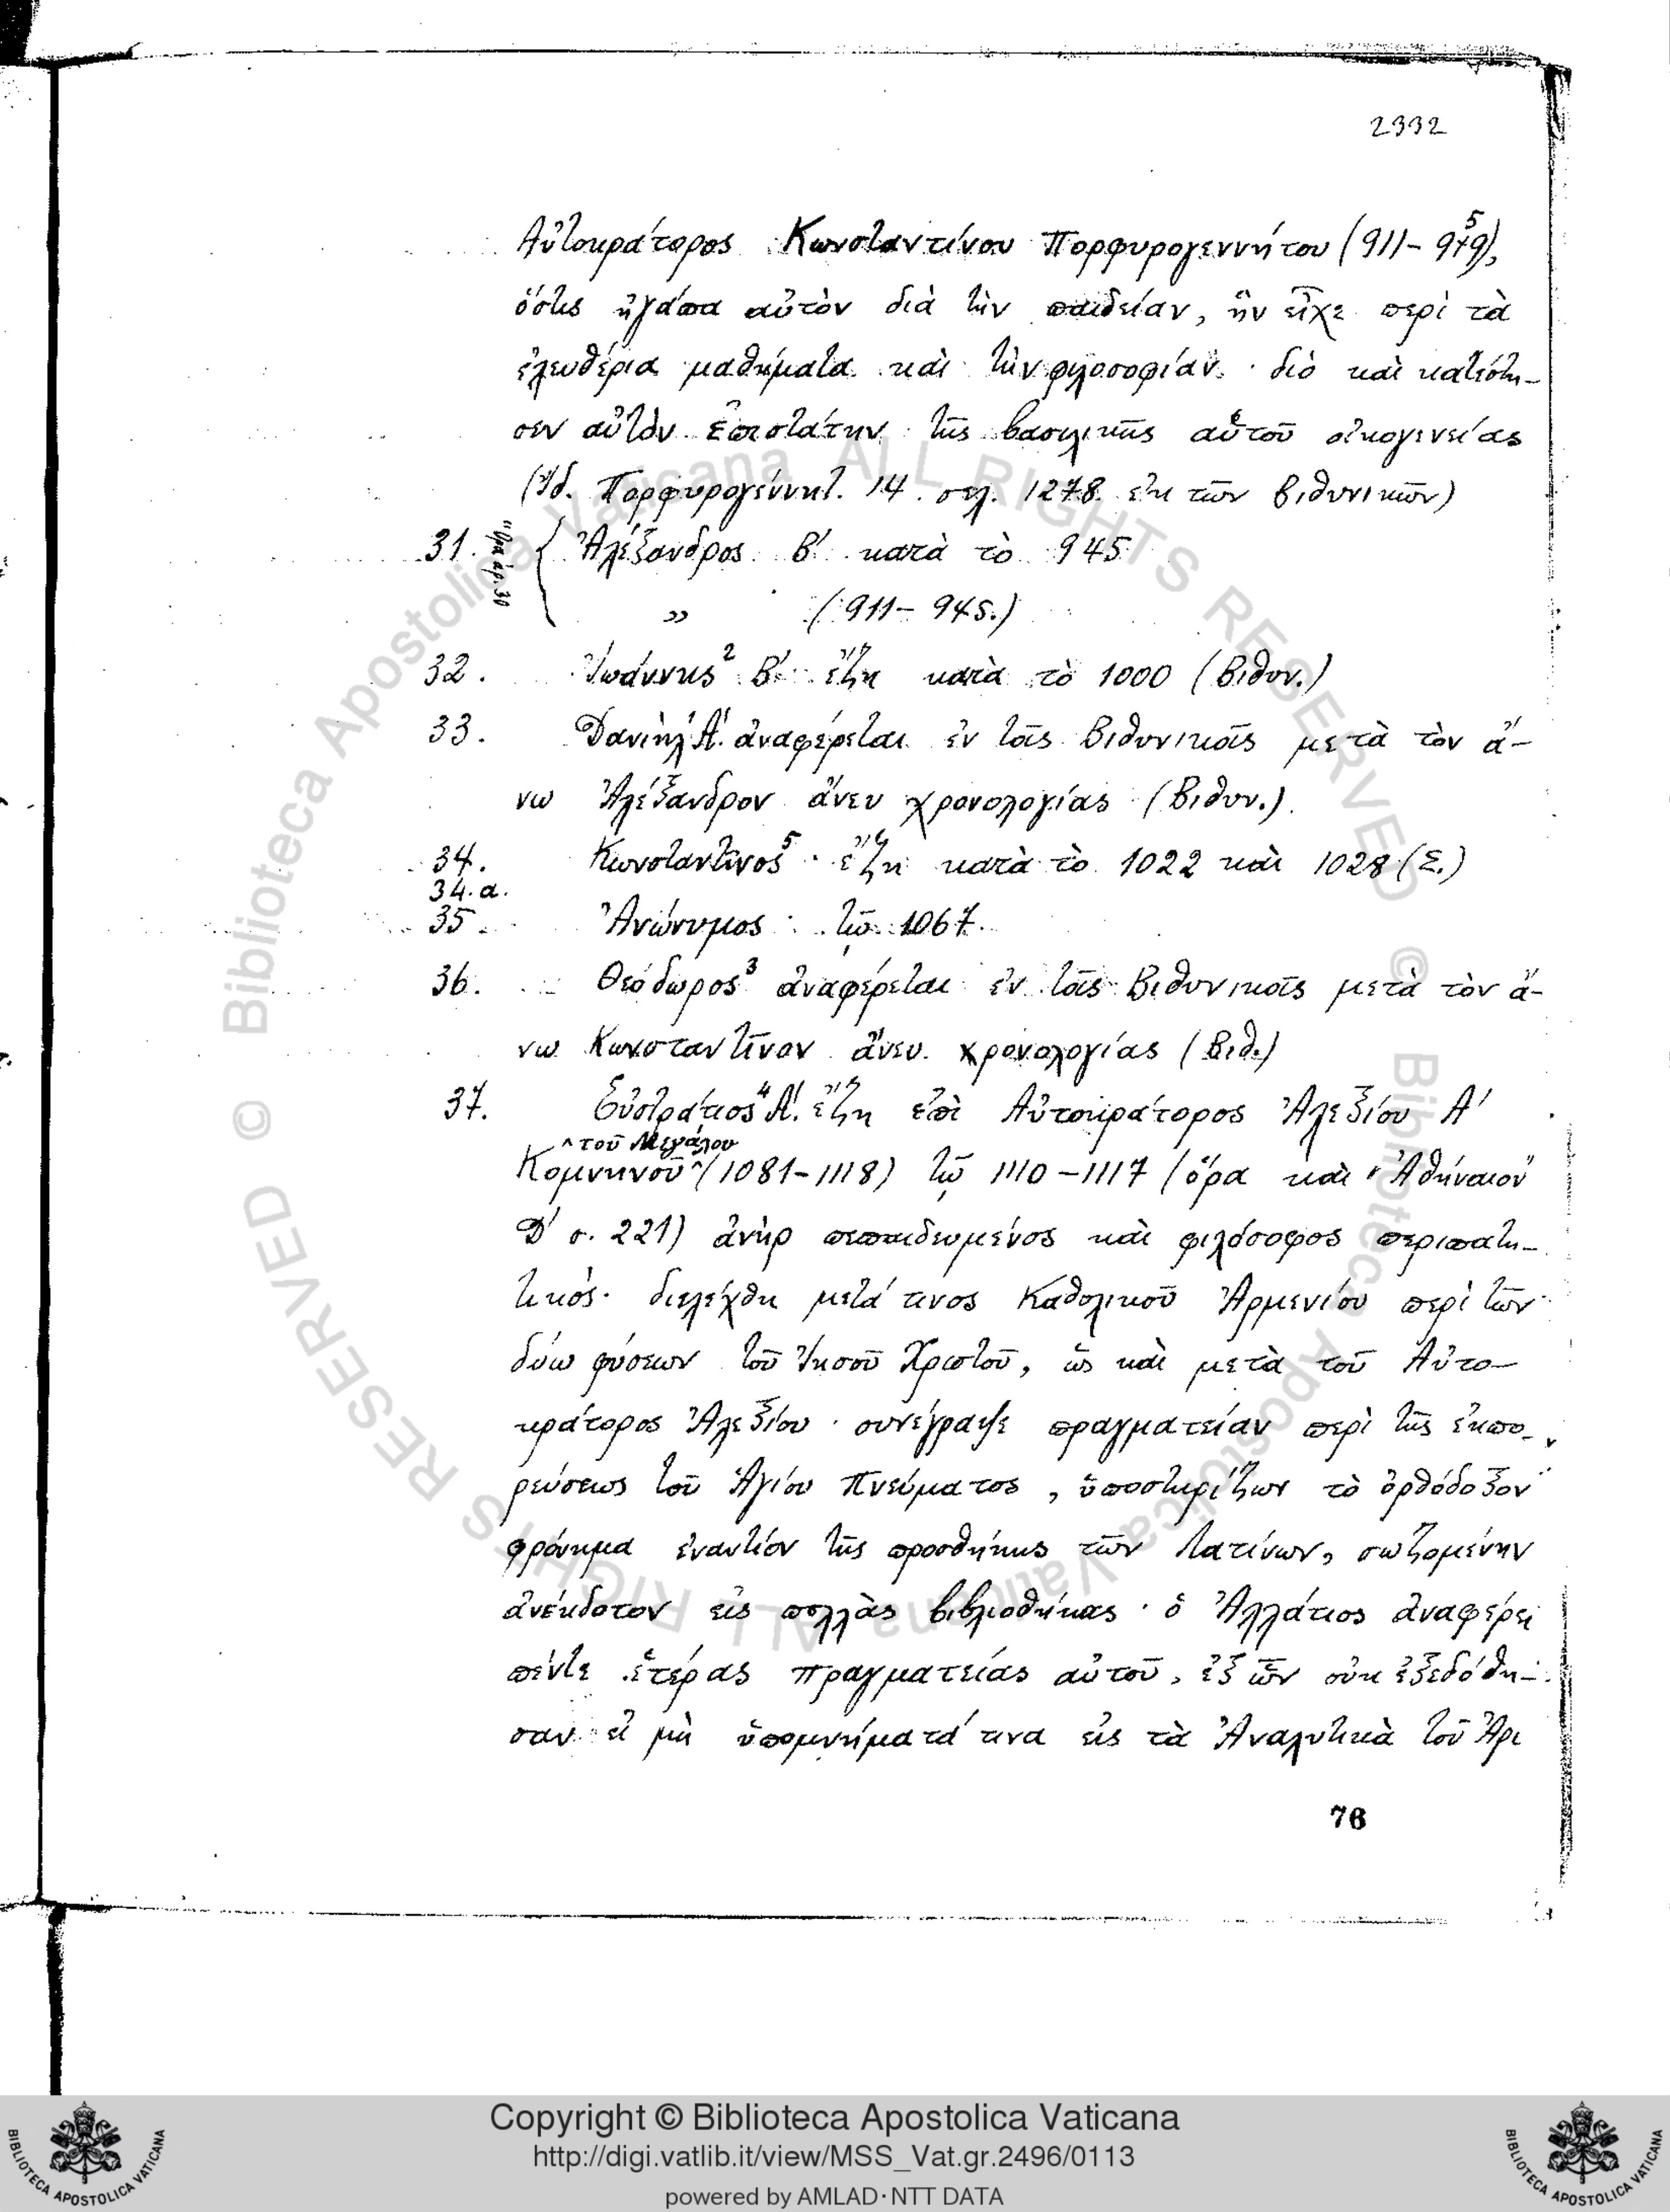 2332
Αὐτοκράτορος Κωνσταντίνου Πορφυρογεννήτου (911-959),
ὅστις ἠγάπα αὐτὸν διὰ τὴν παιδείαν, ἣν εἶχε περὶ τὰ
ἐλευθέρια μαθήματα καὶ τὴν φιλοσοφίαν · διὸ καὶ κατέστη-
σεν αὐτὸν ἐπιστάτην τῆς βασιλικῆς αὑτοῦ οἰκογενείας
(Ἰδ. Πορφυρογέννητ. 14. σελ. 1278 ἐκ τῶν βιθυνικῶν)
31. Ὅρα ἀρ. 30 { Ἀλέξανδρος Β' κατὰ τὸ 945
» (911-945.)
32. Ἰωάννης² Β' ἔζη κατὰ τὸ 1000 (Βιθυν.)
33. Δανιὴλ Α'. ἀναφέρεται ἐν τοῖς Βιθυνικοῖς μετὰ τὸν ἄ-
νω Ἀλέξανδρον ἄνευ χρονολογίας (Βιθυν.).
34. Κωνσταντῖνος⁵ · ἔζη κατὰ τὸ 1022 καὶ 1028 (Σ.)
34.α.
35. Ἀνώνυμος : τῷ 1067.
36. Θεόδωρος³ ἀναφέρεται ἐν τοῖς Βιθυνικοῖς μετὰ τὸν ἄ-
νω Κωνσταντῖνον ἄνευ χρονολογίας (Βιθ.)
37. Εὐστράτιος⁴ Α'. ἔζη ἐπὶ Αὐτοκράτορος Ἀλεξίου Α'
^ τοῦ Μεγάλου
Κομνηνοῦ^ (1081-1118) τῷ 1110-1117 (ὅρα καὶ "Ἀθήναιον"
Δ' σ. 221) ἀνὴρ πεπαιδευμένος καὶ φιλόσοφος περιπατη-
τικός· διελέχθη μετά τινος Καθολικοῦ Ἀρμενίου περὶ τῶν
δύω φύσεων τοῦ Ἰησοῦ Χριστοῦ, ὡς καὶ μετὰ τοῦ Αὐτο-
κράτορος Ἀλεξίου · συνέγραψε πραγματείαν περὶ τῆς ἐκπο-
ρεύσεως τοῦ Ἁγίου Πνεύματος, ὑποστηρίζων τὸ ὀρθόδοξον
φρόνημα ἐναντίον τῆς προσθήκης τῶν Λατίνων, σωζομένην
ἀνέκδοτον εἰς πολλὰς βιβλιοθήκας · ὁ Ἀλλάτιος ἀναφέρει
πέντε ἑτέρας πραγματείας αὐτοῦ, ἐξ ὧν οὐκ ἐξεδόθη-
σαν εἰ μὴ ὑπομνήματά τινα εἰς τὰ Ἀναλυτικὰ τοῦ Ἀρι
76
© Biblioteca Apostolica Vaticana ALL RIGHTS RESERVED
© Biblioteca Apostolica Vaticana ALL RIGHTS RESERVED
Copyright © Biblioteca Apostolica Vaticana
http://digi.vatlib.it/view/MSS_Vat.gr.2496/0113
powered by AMLAD·NTT DATA
BIBLIOTECA APOSTOLICA VATICANA
BIBLIOTECA APOSTOLICA VATICANA